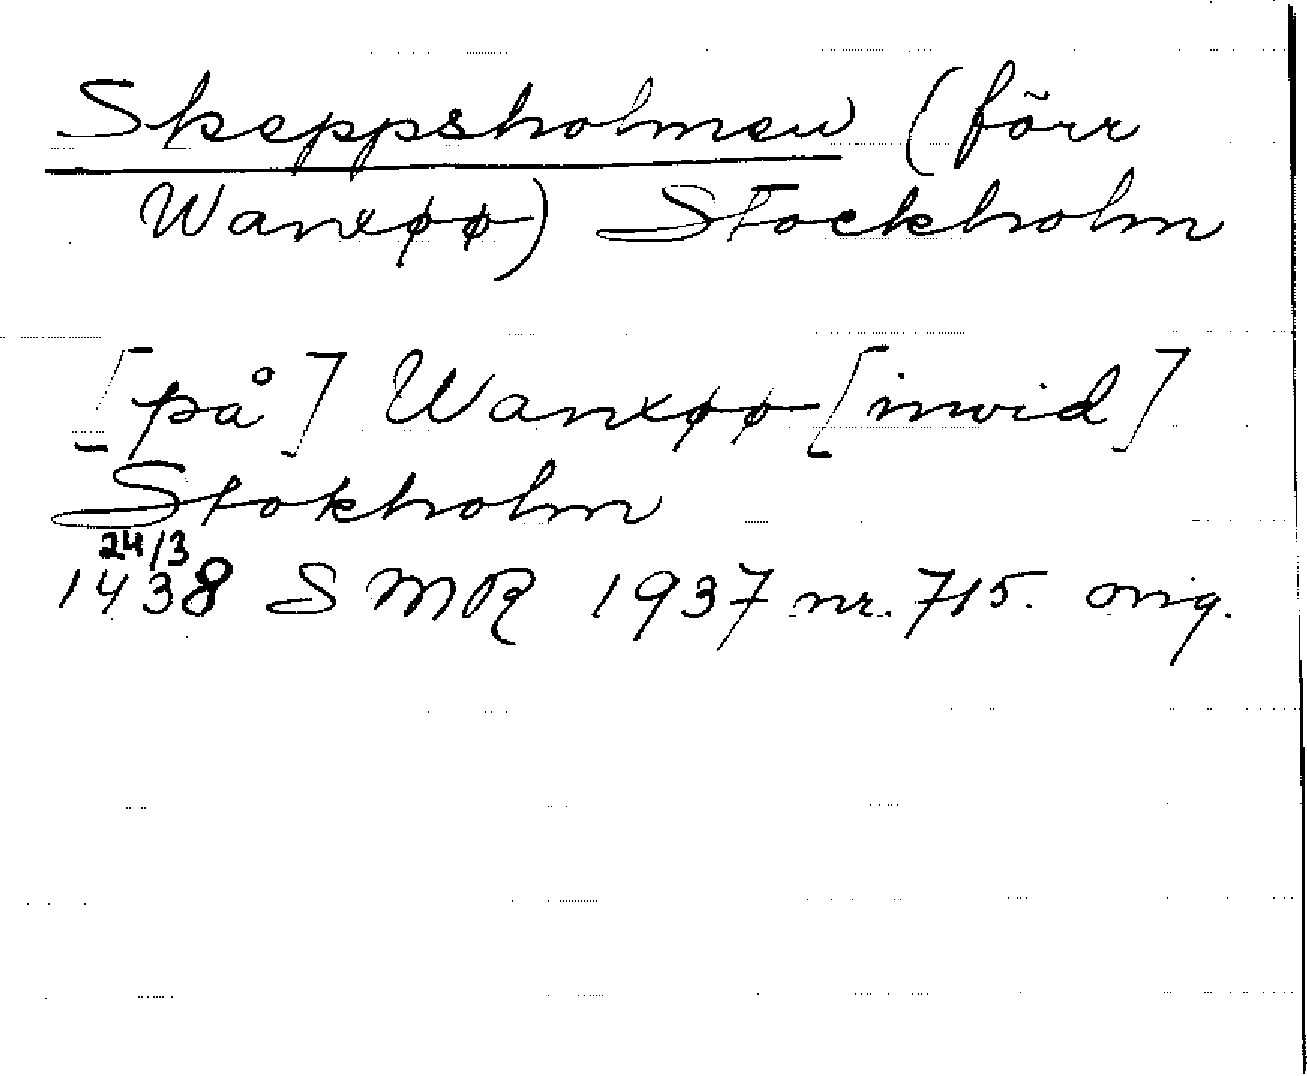 Skeppsholmen (förr
Wanxøø) Stockholm
[på] Wanxøø [invid]
Stokholm
24/3
1438 SMR 1937 nr. 715. orig.